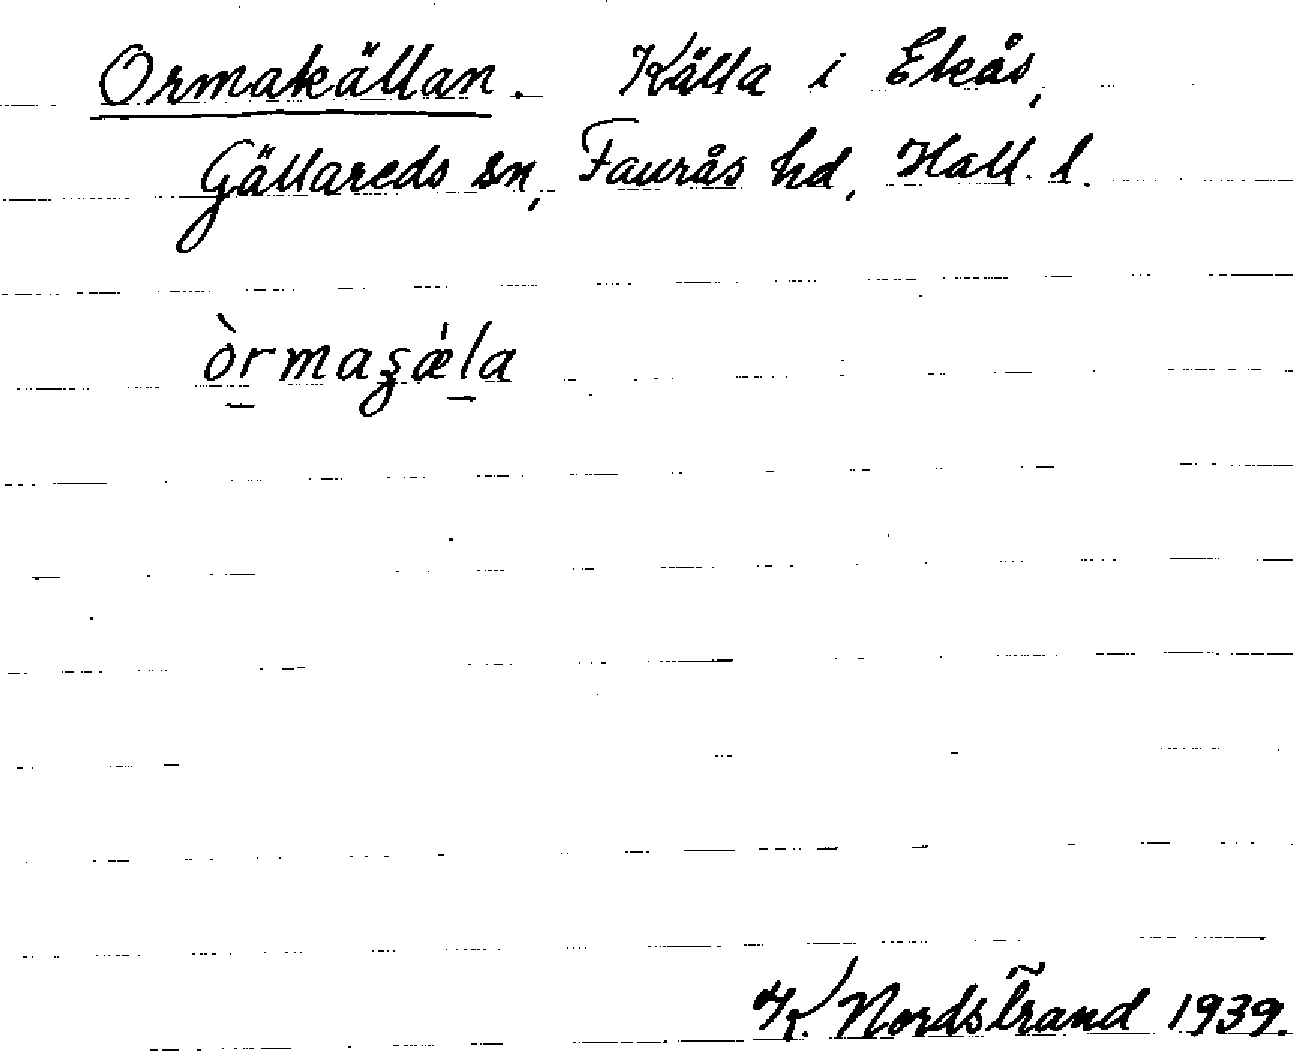 Ormakällan. Källa i Ekås,
Gällareds sn, Faurås hd, Hall. l.
òrmaʂǽla
K. Nordstrand 1939.